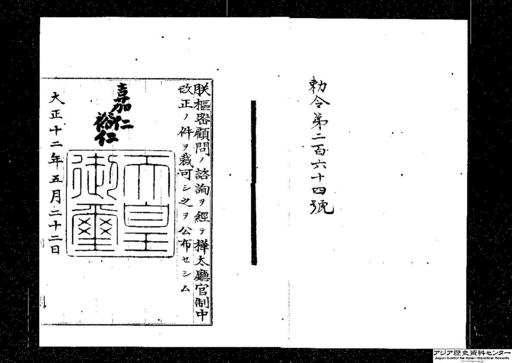 勅令第二百六十四號
朕樞密顧問ノ諮詢ヲ經テ樺太廳官制中
改正ノ件ヲ裁可シ之ヲ公布セシム
嘉仁
裕仁
天皇
御璽
大正十二年五月二十二日
アジア歴史資料センター
Japan Center for Asian Historical Records